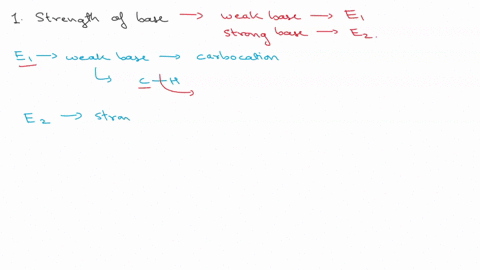 1. Strength of base → weak base → E1
strong base → E2.
E1 → weak base → carbocation
C-H
E2 → stron